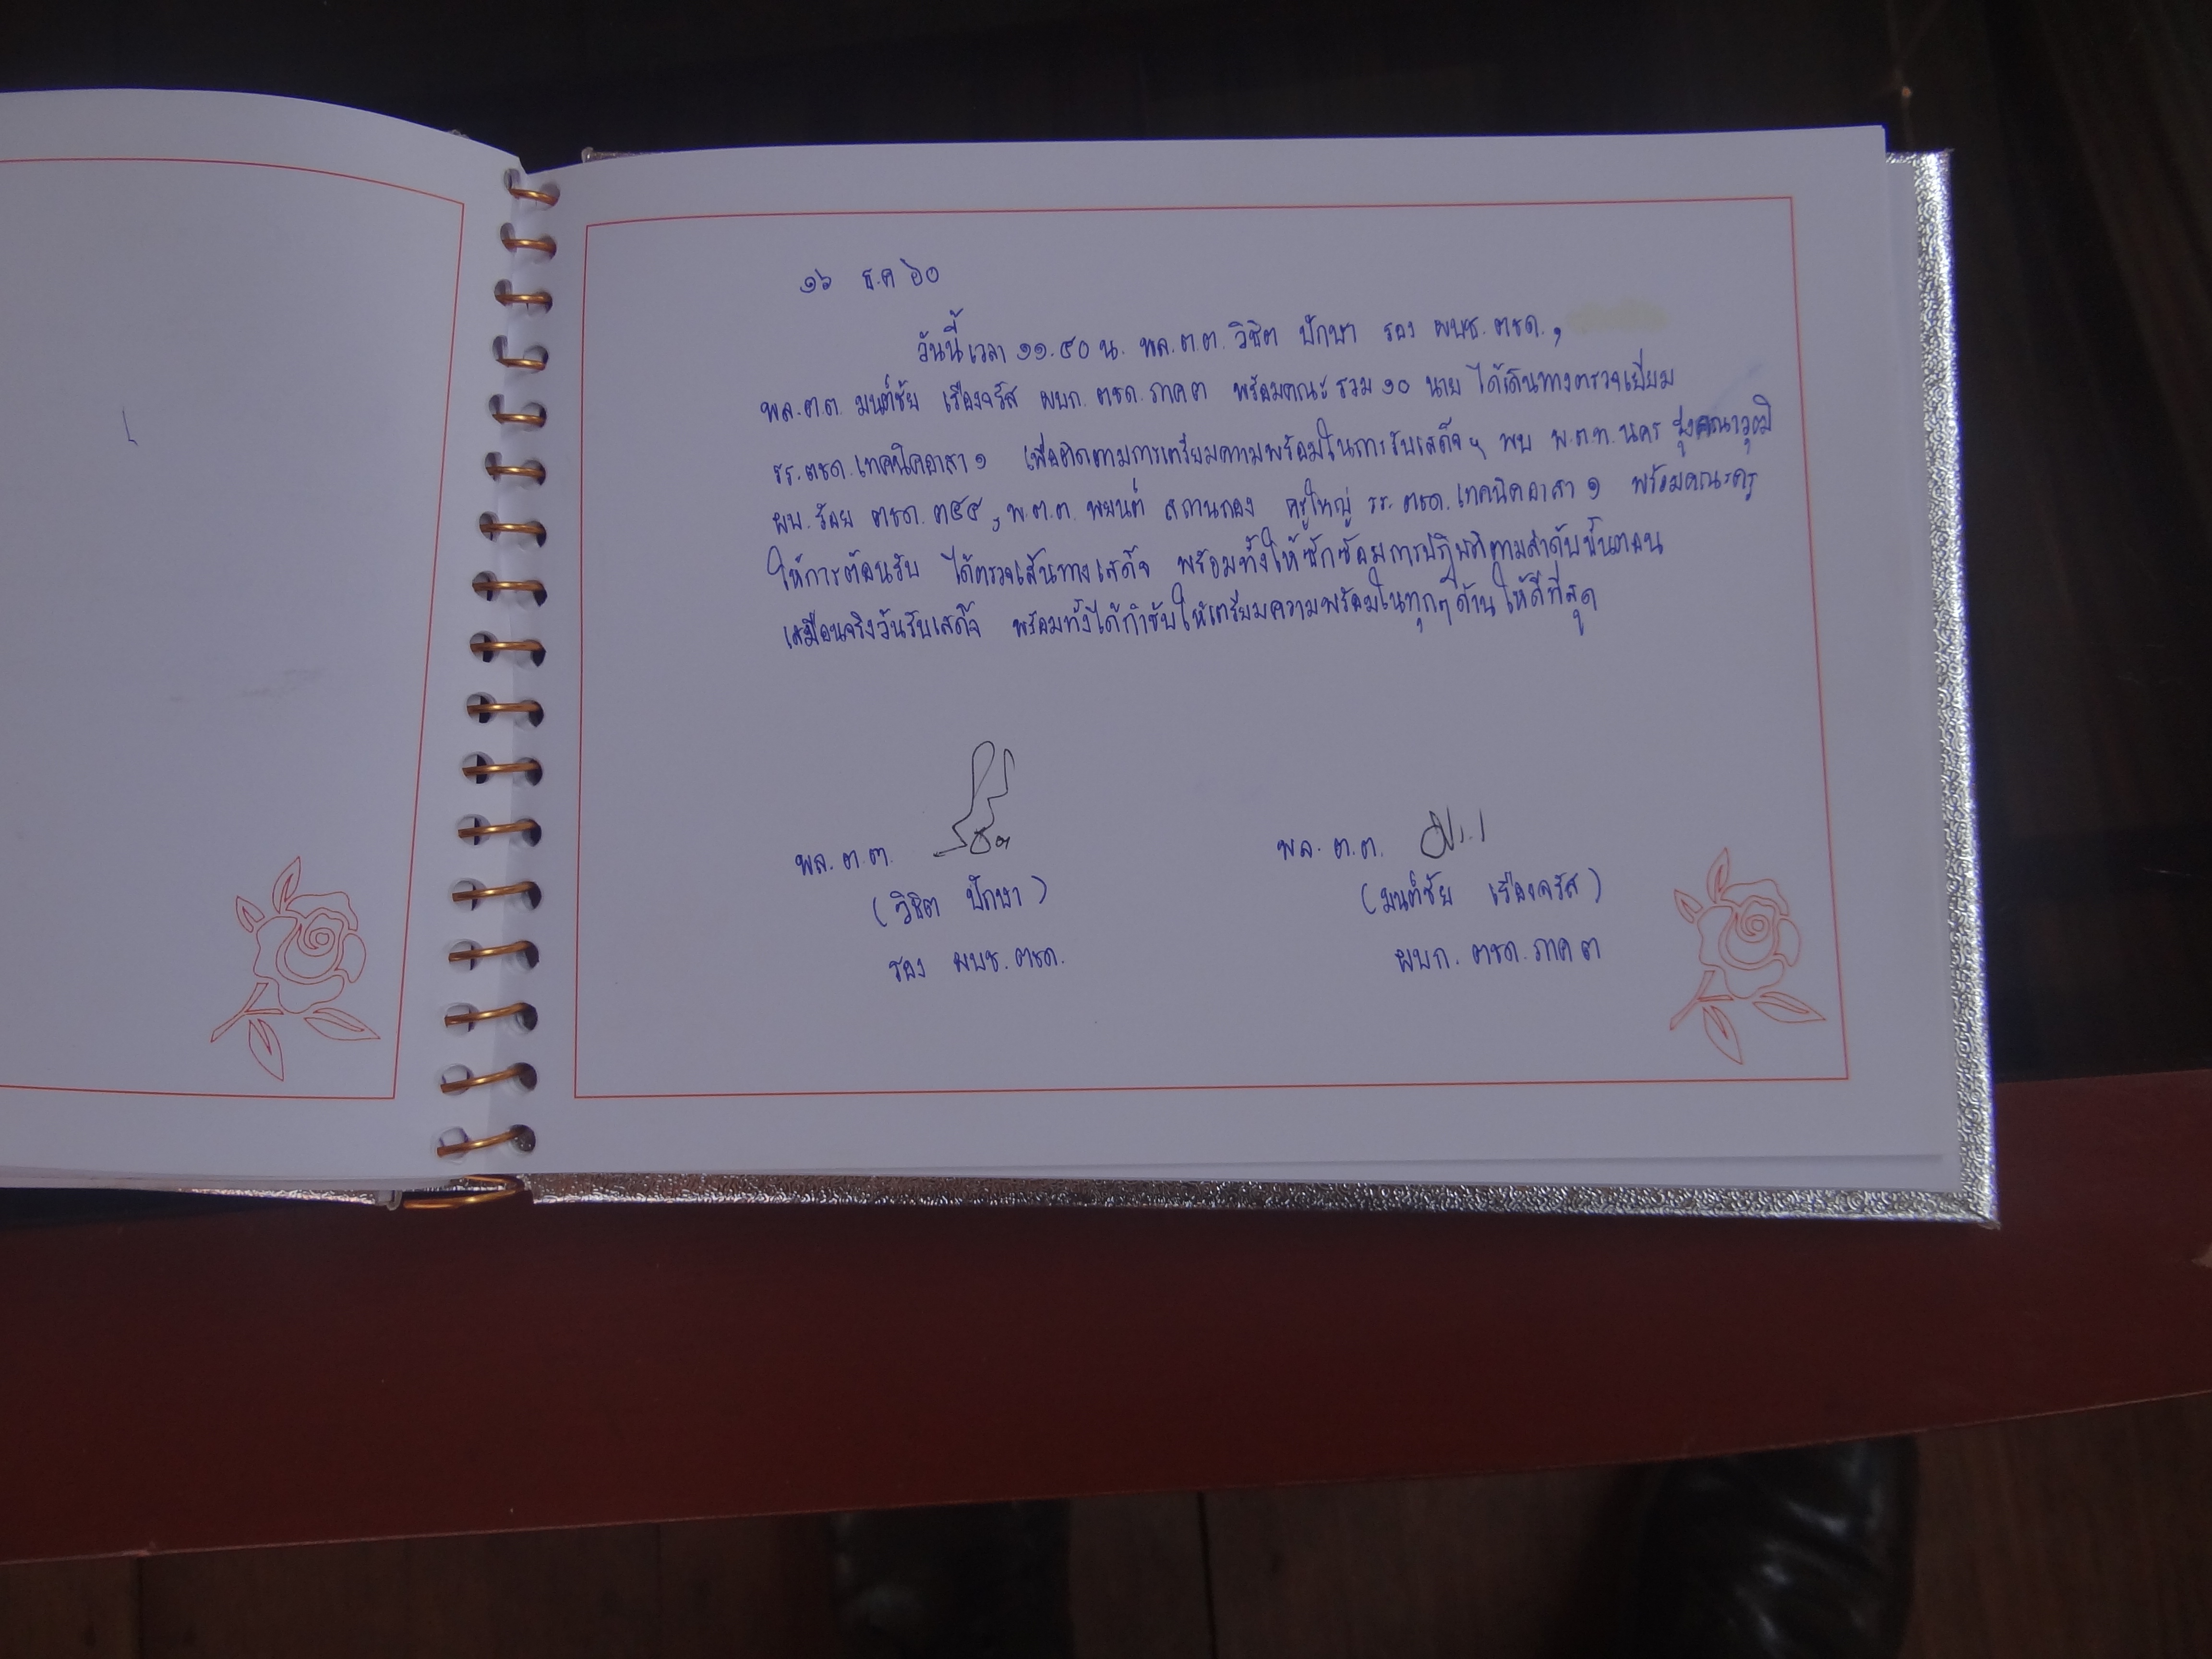 ๑๖ ธ.ค ๖๐
วันนี้เวลา ๑๑.๕๐ น. พล.ต.ต. วิชิต ปักษา รอง ผบช. ตชด.,
พล.ต.ต. มนต์ชัย เรืองจรัส ผบก. ตชด. ภาค ๓ พร้อมคณะ รวม ๑๐ นาย ได้เดินทางตรวจเยี่ยม
รร. ตชด. เทคนิคอาสา ๑ เพื่อติดตามการเตรียมความพร้อมในการรับเสด็จฯ พบ พ.ต.ท. นคร
ผบ. ร้อย ตชด. ๓๕๕, พ.ต.ต. พยนต์ สถานกอง ครูใหญ่ รร. ตชด. เทคนิคอาสา ๑ พร้อมคณะครู
ให้การต้อนรับ ได้ตรวจเส้นทางเสด็จ พร้อมทั้งให้ซักซ้อมการปฏิบัติตามลำดับขั้นตอน
เสมือนจริงวันรับเสด็จ พร้อมทั้งได้กำชับให้เตรียมความพร้อมในทุกๆด้าน ให้ดีที่สุด
พล.ต.ต. พล.ต.ต.
(วิชิต ปักษา) (มนต์ชัย เรืองจรัส)
รอง ผบช. ตชด. ผบก. ตชด. ภาค ๓